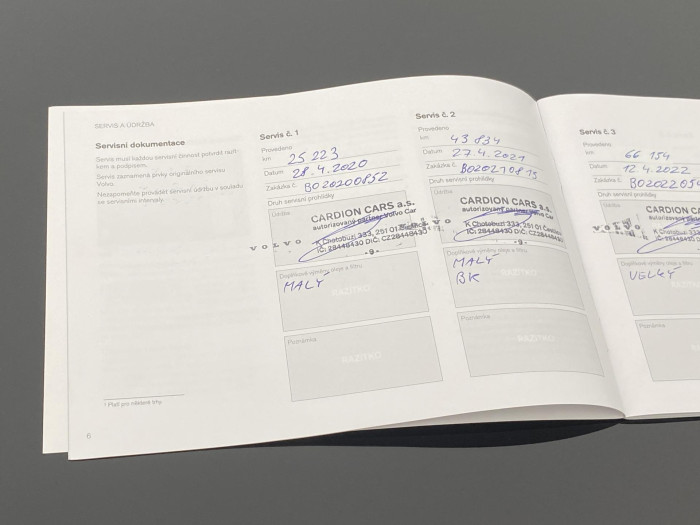 SERVIS A ÚDRŽBA
Servisní dokumentace
Servis musí každou servisní činnost potvrdit razít-
kem a podpisem.
Servis znamená plnky originálního servisu
Volvo.
Nezapomeňte provádět servisní údržbu v souladu
se servisními intervaly.
¹ Platí pro některé trhy.
6
Servis č. 1
Provedeno
km 25 223
Datum 28.4.2020
Zakázka č. BO20200852
Druh servisní prohlídky
Údržba
CARDION CARS a.s.
autorizovaný partner Volvo Car
VOLVO K Chotobuzi 333, 251 01
IČ: 28448430 DIČ: CZ28448430
- 9 -
Doplňkové výměny oleje a filtru
MALÝ
RAZÍTKO
Poznámka
RAZÍTKO
Servis č. 2
Provedeno
km 43 834
Datum 27.4.2021
Zakázka č. BO20210815
Druh servisní prohlídky
Údržba
CARDION CARS a.s.
autorizovaný partner Volvo Car
VOLVO K Chotobuzi 333, 251 01
IČ: 28448430 DIČ: CZ28448430
- 9 -
Doplňkové výměny oleje a filtru
MALÝ
BK
Poznámka
RAZÍTKO
Servis č. 3
Provedeno
km 66 154
Datum 12.4.2022
Zakázka č. BO2022054
Druh servisní prohlídky
Údržba
CARDION CA
autorizovaný
VOLVO K Chotobuzi 333
IČ: 28448430
Doplňkové výměny oleje a filtru
VELKÝ
Poznámka